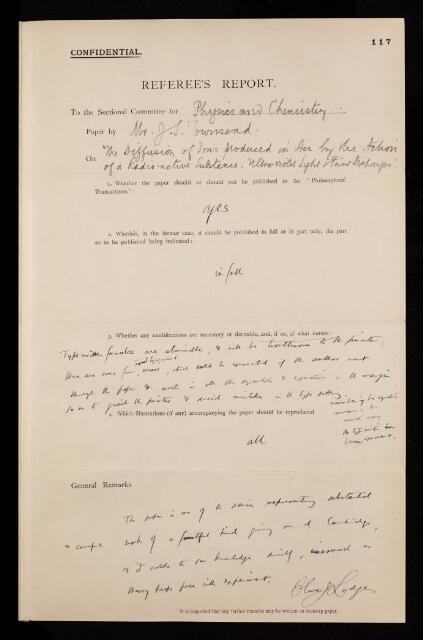 117
CONFIDENTIAL.
REFEREE'S REPORT.
To the Sectional Committee for Physics and Chemistry.
Paper by Mr. J. S. Townsend.
On "The Diffusion of Ions produced in Air by the Action
of a Radio-active Substance, Ultra Violet Light & Point Discharges".
1. Whether the paper should or should not be published in the "Philosophical
Transactions":
yes
2. Whether, in the former case, it should be published in full or in part only, the part
so to be published being indicated:
in full
3. Whether any modifications are necessary or desirable, and, if so, of what nature:
Type written formulae are abominable, & will be troublesome to the printer,
there are some few errors, which could be corrected if the author went
through the paper & wrote in all the symbols & equations in the margin
so as to guide the printer & avoid mistakes in the type setting
4. Which illustrations (if any) accompanying the paper should be reproduced
all
General Remarks.
The paper is one of the series representing substantial
work of a fruitful kind going on at Cambridge,
& it adds to our knowledge inasmuch as
theory keeps pace with experiment.
Oliver J Lodge
It is requested that any further remarks may be written on foolscap paper.